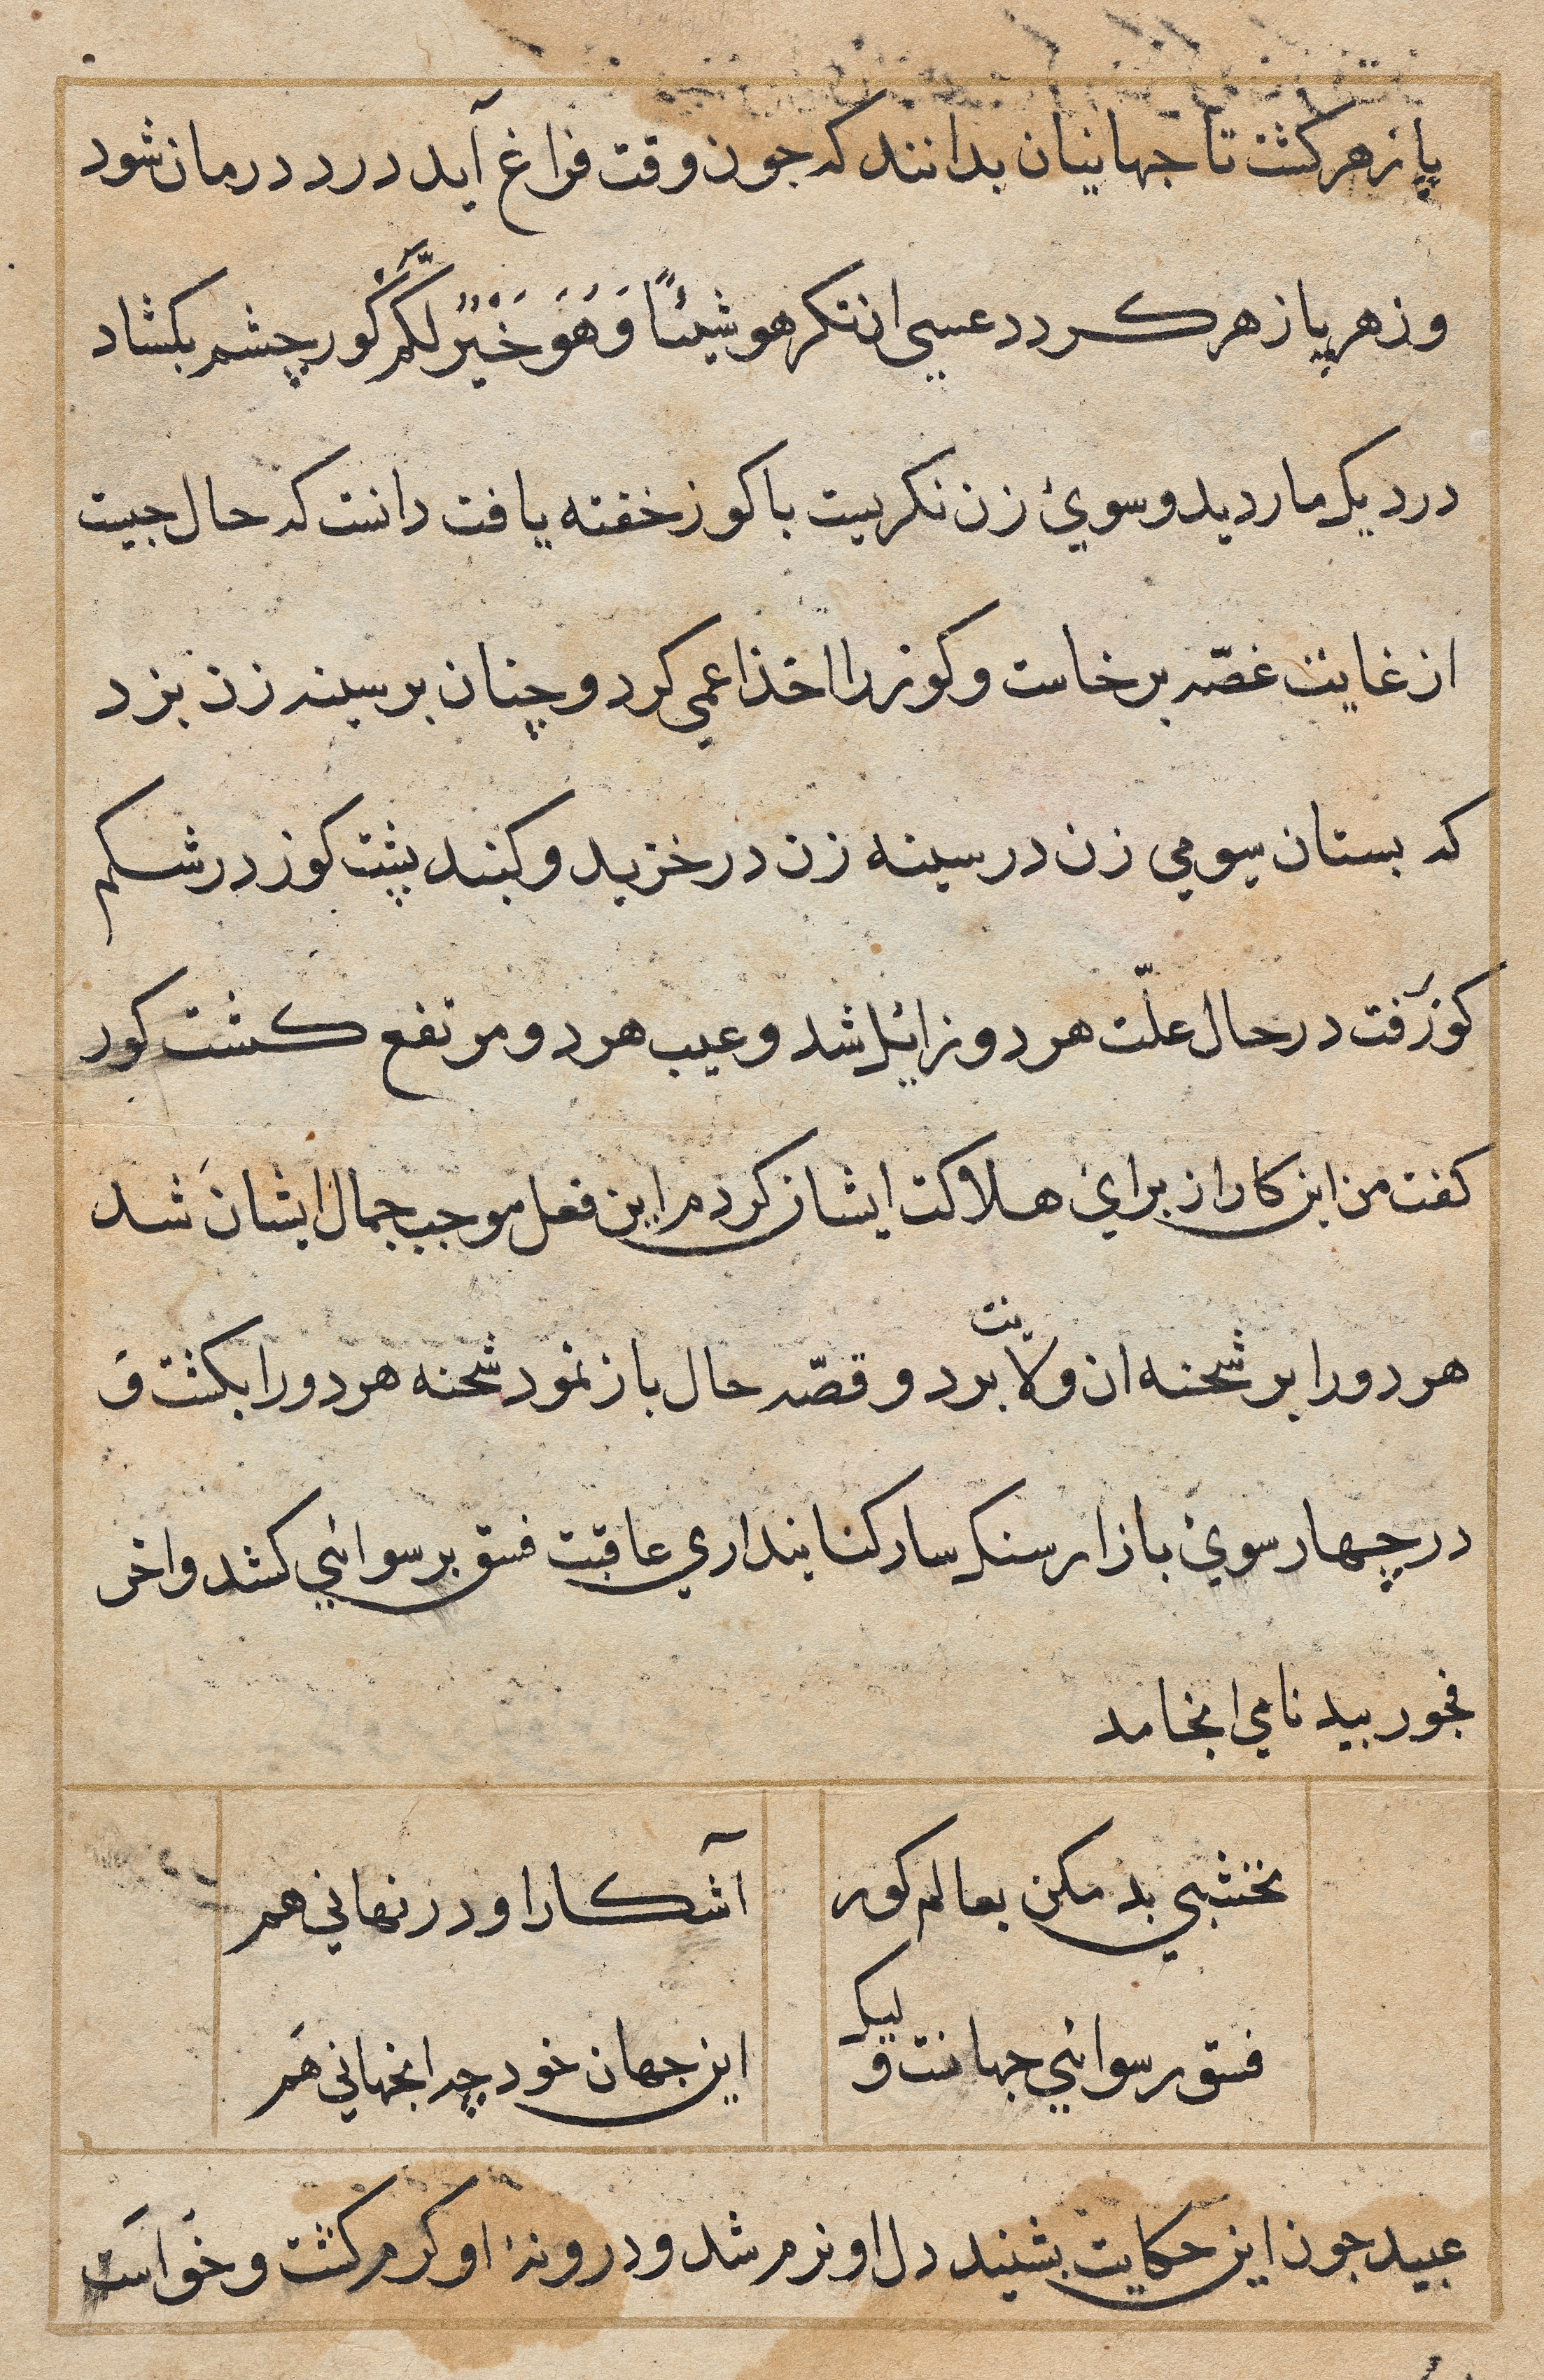 پازهر کشت تا جهانیان بدانند که جون وقت فراغ آید درد درمان شود
و زهر پازهر کردد عسی ان تکرهو شیئًا وَهُوَ خَیْرٌ لَّکُمْ کور چشم بکشاد
در دیک مار دید و سوئ زن نکریست با کوز خفته یافت دانست که حال جیست
از غایت غصّه برخاست و کوز را اخذ اعمی کرد و چنان بر سینه زن بزد
که بستان سومی زن در سینه زن در خزید و کنبد پشت کوز در شکم
کوز رفت در حال علّت هر دو زایل شد و عیب هر دو مرتفع کشت کور
کفت من این کار از برای هلاکت ایشان کردم این فعل موجب جمال ایشان شد
هر دو را بر شحنه ان ولایت برد و قصّه حال باز نمود شحنه هر دو را بکشت وَ
در چهار سوئ بازار سنک سار کنانبداری عاقبت فسق برسوائی کشد و اخر
فجور ببد نامی انجامد
نخشبی بد مکن بعالم کور
آشکارا و در نهانی هم
فسق رسوائی جهانست ولیک
این جهان خود چه انجهانی هَم
عبید جون این حکایت بشنید دل او نرم شد و درونهٔ او کرم کشت و خواست